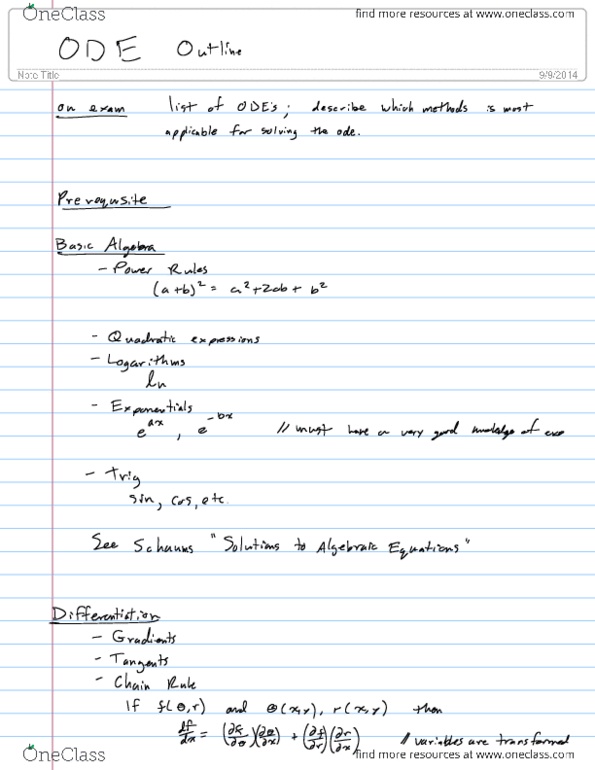 OneClass find more resources at www.oneclass.com
ODE Outline
Note Title 9/9/2014
on exam list of ODE's; describe which methods is most
applicable for solving the ode.
Prerequisite
Basic Algebra
- Power Rules
(a+b)² = a²+2ab+ b²
- Quadratic expressions
- Logarithms
ln
- Exponentials
e^ax, e^-bx // must have a very good knowledge of exp
- Trig
sin, cos, etc.
See Schaums "Solutions to Algebraic Equations"
Differentiation
- Gradients
- Tangents
- Chain Rule
If f(θ,r) and θ(x,y), r(x,y) then
df/dx = (∂f/∂θ)(∂θ/∂x) + (∂f/∂r)(∂r/∂x) // variables are transformed
OneClass find more resources at www.oneclass.com